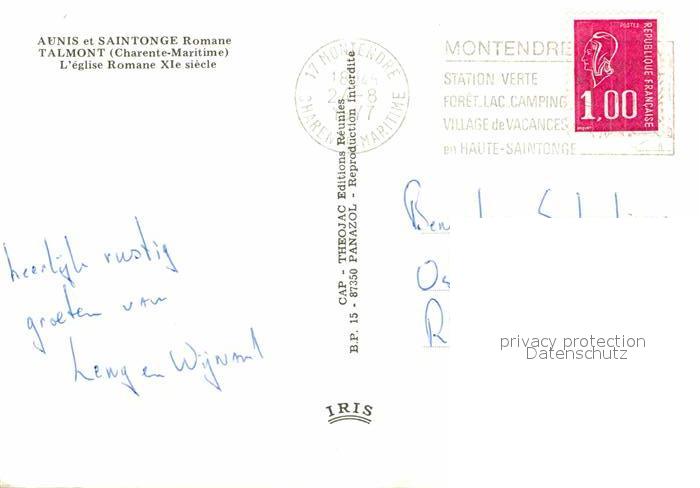 AUNIS et SAINTONGE Romane
TALMONT (Charente-Maritime)
L'église Romane XIe siècle
heerlijk rustig
groeten van
en Wijnand
CAP - THEOJAC Editions Réunies
B.P. 15 - 87350 PANAZOL - Reproduction Interdite
IRIS
17 MONTENDRE
CHARENTE MARITIME
MONTENDRE
STATION VERTE
FORÊT. LAC. CAMPING
VILLAGE de VACANCES
en HAUTE-SAINTONGE
POSTES
REPUBLIQUE FRANÇAISE
1,00
privacy protection
Datenschutz